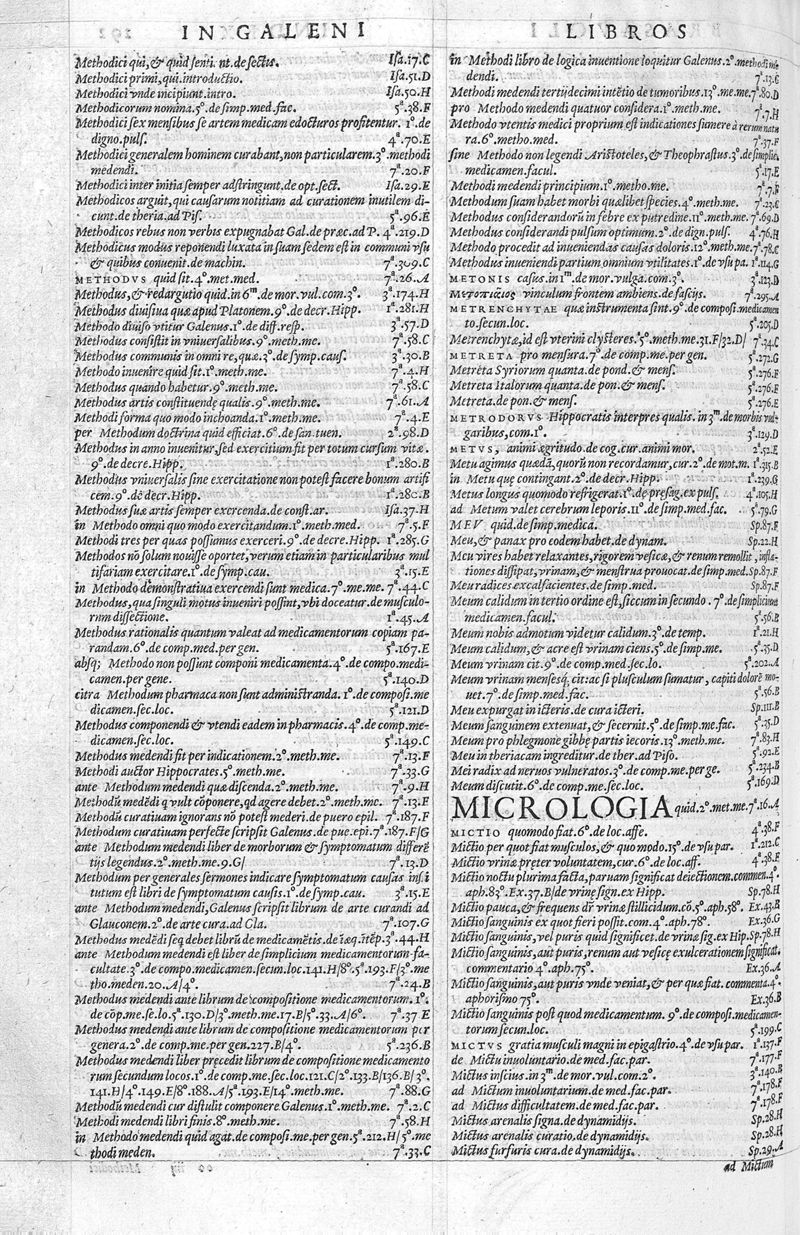 IN GALENI
Methodici qui, & quid senti. nt. de sectis. Isa.17.C
Methodici primi, qui. introductio. Isa.51.D
Methodici vnde incipiunt. intro. Isa.50.H
Methodicorum nomina. 5º. de simp. med. fac. 5ª.38.F
Methodici sex mensibus se artem medicam edocturos profitentur. 1º. de
digno. puls. 4ª.70.E
Methodici generalem hominem curabant, non particularem. 3º. methodi
medendi. 7ª.20.F
Methodici inter initia semper adstringunt. de opt. sect. Isa.29.E
Methodicos arguit, qui causarum notitiam ad curationem inutilem di-
cunt. de theria. ad Pis. 5ª.96.E
Methodicos rebus non verbis expugnabat Gal. de præc. ad P. 4ª.219.D
Methodicus modus reponendi luxata in suam sedem est in communi vsu
& quibus conuenit. de machin. 7ª.309.C
METHODVS quid sit. 4º. met. med. 7ª.26.A
Methodus, & redargutio quid. in 6m. de mor. vul. com. 3º. 3ª.174.H
Methodus diuisiua quæ apud Platonem. 9º. de decr. Hipp. 1ª.281.H
Methodo diuiso vtitur Galenus. 1º. de diff. resp. 3ª.57.D
Methodus consistit in vniuersalibus. 9º. meth. me. 7ª.58.C
Methodus communis in omni re, quæ. 3º. de symp. caus. 3ª.30.B
Methodo inuenire quid sit. 1º. meth. me. 7ª.4.H
Methodus quando habetur. 9º. meth. me. 7ª.58.C
Methodus artis constituendę qualis. 9º. meth. me. 7ª.61.A
Methodi forma quo modo inchoanda. 1º. meth. me. 7ª.4.E
per Methodum doctrina quid efficiat. 6º. de san. tuen. 2ª.98.D
Methodus in anno inuenitur, sed exercitium fit per totum cursum vitæ.
9º. de decre. Hipp. 1ª.280.B
Methodus vniuersalis sine exercitatione non potest facere bonum artifi
cem. 9º. de decr. Hipp. 1ª.280.B
Methodus suæ artis semper exercenda. de const. ar. Isa.37.H
in Methodo omni quo modo exercitandum. 1º. meth. med. 7ª.5.F
Methodi tres per quas possumus exerceri. 9º. de decre. Hipp. 1ª.285.G
Methodos nō solum nouisse oportet, verum etiam in particularibus mul
tifariam exercitare. 1º. de symp. cau. 3ª.15.E
in Methodo demonstratiua exercendi sunt medica. 7º. me. me. 7ª.44.C
Methodus, qua singuli motus inueniri possint, vbi doceatur. de musculo-
rum dissectione. 1ª.45.A
Methodus rationalis quantum valeat ad medicamentorum copiam pa-
randam. 6º. de comp. med. per gen. 5ª.167.E
absq; Methodo non possunt componi medicamenta. 4º. de compo. medi-
camen. per gene. 5ª.140.D
citra Methodum pharmaca non sunt administranda. 1º. de composi. me
dicamen. sec. loc. 5ª.121.D
Methodus componendi & vtendi eadem in pharmacis. 4º. de comp. me-
dicamen. sec. loc. 5ª.149.C
Methodus medendi fit per indicationem. 2º. meth. me. 7ª.13.F
Methodi auctor Hippocrates. 5º. meth. me. 7ª.33.G
ante Methodum medendi quæ discenda. 2º. meth. me. 7ª.9.H
Methodū medēdi q vult cōponere, qd agere debet. 2º. meth. me. 7ª.13.E
Methodū curatiuam ignorans nō potest mederi. de puero epil. 7ª.187.F
Methodum curatiuam perfecte scripsit Galenus. de pue. epi. 7ª.187.F/G
ante Methodum medendi liber de morborum & symptomatum differē
tijs legendus. 2º. meth. me. 9.G/ 7ª.13.D
Methodum per generales sermones indicare symptomatum causas insti
tutum est libri de symptomatum causis. 1º. de symp. cau. 3ª.15.E
ante Methodum medendi, Galenus scripsit librum de arte curandi ad
Glauconem. 2º. de arte cura. ad Gla. 7ª.107.G
Methodus medēdi seq debet librū de medicamētis. 3ª.44.H
ante Methodum medendi est liber de simplicium medicamentorum fa-
cultate. 3º. de compo. medicamen. secun. loc. 141.H/8º. 5ª.193.F/3º. me
tho. meden. 20.A/4º. 7ª.24.B
Methodus medendi ante librum de compositione medicamentorum. 1º.
de cōp. me. se. lo. 5ª.130.D/3º. meth. me. 17.B/5º. 33.A/6º. 7ª.37 E
Methodus medendi ante librum de compositione medicamentorum per
genera. 2º. de comp. me. per gen. 227.B/4º. 5ª.236.B
Methodus medendi liber pręcedit librum de compositione medicamento
rum secundum locos. 1º. de comp. me. sec. loc. 121.C/2º. 133.B/136.B/3º.
141.H/4º. 149.E/8º. 188.A/5ª.193.E/14º. meth. me. 7ª.88.G
Methodū medendi cur distulit componere Galenus. 1º. meth. me. 7ª.2.C
Methodi medendi libri finis. 8º. meth. me. 7ª.58.H
in Methodo medendi quid agat. de composi. me. per gen. 5ª.212.H/5º. me
thodi meden. 7ª.33.C
LIBROS
in Methodi libro de logica inuentione loquitur Galenus. 2º. methodi me
dendi. 7ª.13.C
Methodi medendi tertijdecimi intētio de tumoribus. 13º. me. me. 7ª.80.D
pro Methodo medendi quatuor considera. 1º. meth. me. 7ª.7.H
Methodo vtentis medici proprium est indicationes sumere à rerum natu
ra. 6º. metho. med. 7ª.37.F
sine Methodo non legendi Aristoteles, & Theophrastus. 3º. de simplic.
medicamen. facul. 5ª.17.E
Methodi medendi principium. 1º. metho. me. 7ª.7.F
Methodum suam habet morbi quælibet species. 4º. meth. me. 7ª.23.C
Methodus considerandorū in febre ex putredine. 11º. meth. me. 7ª.69.D
Methodus considerandi pulsum optimum. 2º. de dign. puls. 4ª.76.H
Methodo procedit ad inueniendas causas doloris. 12º. meth. me. 7ª.78.C
Methodus inueniendi partium omnium vtilitates. 1º. de vsu pa. 1ª.114.G
METONIS casus. in 1m. de mor. vulga. com. 3º. 3ª.123.D
vinculum frontem ambiens. de fascijs. 7ª.295.A
METRENCHYTAE quæ instrumenta sint. 9º. de composi. medicamen
to. secun. loc. 5ª.205.D
Metrenchytæ, id est vterini clysteres. 5º. meth. me. 31.F/32.D/ 7ª.34.C
METRETA pro mensura. 7º. de comp. me. per gen. 5ª.272.G
Metrēta Syriorum quanta. de pond. & mens. 5ª.276.F
Metreta Italorum quanta. de pon. & mens. 5ª.276.F
Metreta. de pon. & mens. 5ª.276.E
METRODORVS Hippocratis interpres qualis. in 3m. de morbis vul-
garibus, com. 1º. 3ª.129.D
METVS, animi ægritudo. de cog. cur. animi mor. 2ª.52.E
Metu agimus quædā, quorū non recordamur, cur. 2º. de mot. m. 1ª.315.B
in Metu quę contingant. 2º. de decr. Hipp. 1ª.239.G
Metus longus quomodo refrigerat. 1º. de pręsag. ex puls. 4ª.105.H
ad Metum valet cerebrum leporis. 11º. de simp. med. fac. 5ª.79.G
MEV quid. de simp. medica. Sp.87.F
Meu, & panax pro eodem habet. de dynam. Sp.22.H
Meu vires habet relaxantes, rigorem vesicæ, & renum remollit, infla-
tiones dissipat, vrinam, & menstrua prouocat. de simp. med. Sp.87.F
Meu radices excalfacientes. de simp. med. Sp.87.F
Meum calidum in tertio ordine est, siccum in secundo. 7º. de simplicium
medicamen. facul. 5ª.56.B
Meum nobis admotum videtur calidum. 3º. de temp. 1ª.21.H
Meum calidum, & acre est vrinam ciens. 5º. de simp. me. 5ª.35.D
Meum vrinam cit. 9º. de comp. med. sec. lo. 5ª.202.A
Meum vrinam menses q, cit: ac si plusculum sumatur, capiti dolorē mo-
uet. 7º. de simp. med. fac. 5ª.56.B
Meu expurgat in icteris. de cura icteri. Sp.111.B
Meum sanguinem extenuat, & secernit. 5º. de simp. me. fac. 5ª.35.D
Meum pro phlegmone gibbę partis iecoris. 13º. meth. me. 7ª.83.H
Meu in theriacam ingreditur. de ther. ad Piso. 5ª.92.E
Mei radix ad neruos vulneratos. 3º. de comp. me. per ge. 5ª.234.B
Meum discutit. 6º. de comp. me. sec. loc. 5ª.169.D
MICROLOGIA quid. 2º. met. me. 7ª.16.A
MICTIO quomodo fiat. 6º. de loc. affe. 4ª.38.F
Mictio per quot fiat musculos, & quo modo. 15º. de vsu par. 1ª.212.C
Mictio vrinæ pręter voluntatem, cur. 6º. de loc. aff. 4ª.38.F
Mictio noctu plurima facta, paruam significat deiectionem. commen. 4º.
aph. 83º. Ex.37.B/de vrinę sign. ex Hipp. Sp.78.H
Mictio pauca, & frequens dr̄ vrinæ stillicidium. cō. 5º. aph. 58º. Ex.43.B
Mictio sanguinis ex quot fieri possit. com. 4º. aph. 78º. Ex.36.G
Mictio sanguinis, vel puris quid significet. de vrinæ sig. ex Hip. Sp.78.H
Mictio sanguinis, aut puris, renum aut vesicę exulcerationem significat.
commentario 4º. aph. 75º. Ex.36.A
Mictio sanguinis, aut puris vnde veniat, & per quæ fiat. commenta. 4º.
aphorismo 75º. Ex.36.B
Mictio sanguinis post quod medicamentum. 9º. de composi. medicamen-
torum secun. loc. 5ª.199.C
MICTVS gratia musculi magni in epigastrio. 4º. de vsu par. 1ª.137.F
de Mictu inuoluntario. de med. fac. par. 7ª.177.F
Mictus inscius in 3m. de mor. vul. com. 2º. 3ª.140.B
ad Mictum inuoluntarium. de med. fac. par. 7ª.178.F
ad Mictus difficultatem. de med. fac. par. 7ª.178.F
Mictus arenalis signa. de dynamidijs. Sp.28.H
Mictus arenalis curatio, de dynamidijs. Sp.28.H
Mictus furfuris cura. de dynamidijs. Sp.29.A
ad Mictum